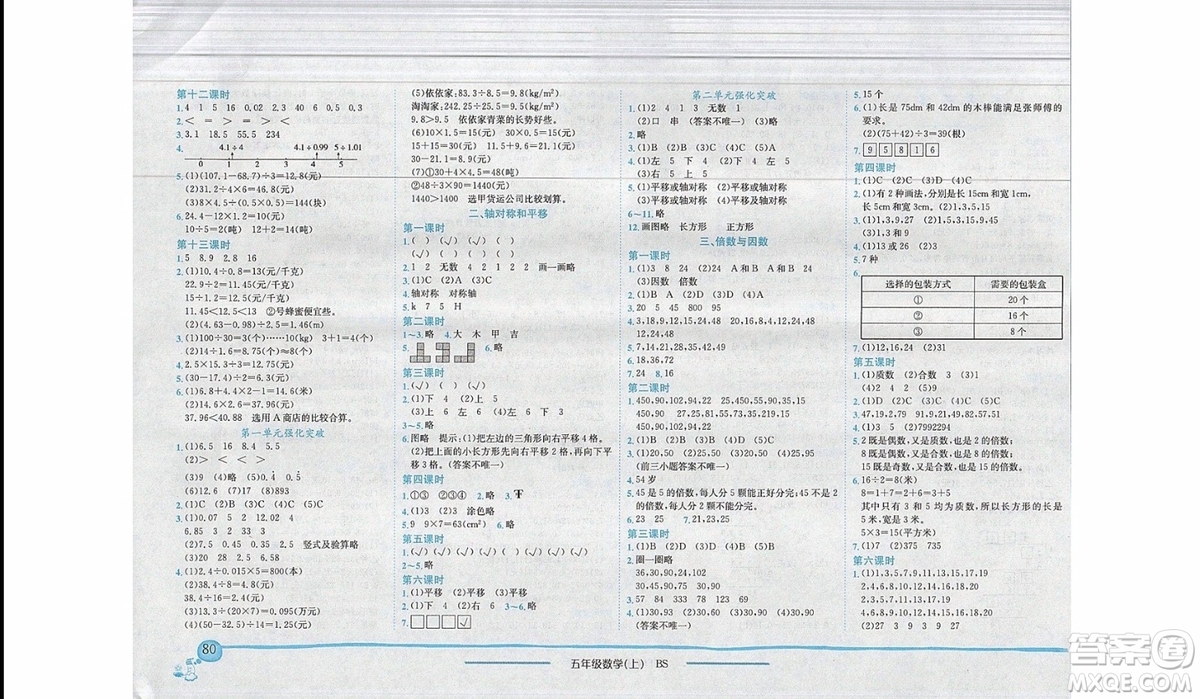 第十二课时
1.4 1 5 16 0.02 2.3 30 6 0.5 0.3
2.< = > = > <
3.3.1 18.5 55.5 234
4. 4.1÷4 4.1÷0.99 5÷1.01
0 1 2 3 4 5
5.(1)(107.1-68.7)÷3=12.8(元)
(2)31.2÷6=5.2(元)
(3)8×4.5÷(0.5×0.5)=144(块)
6.24.4-12×2=0.4(元)
10÷5=2(吨) 12+2=14(吨)
第十三课时
1.5 8.9 2.8 16
2.(1)10.4÷0.8=13(元/千克)
22.9÷2=11.45(元/千克)
15÷1.2=12.5(元/千克)
11.45<12.5<13 ②号蜂蜜便宜些。
(2)(4.8-0.3)÷3=1.5(元)
3.(1)100÷30=3(个)……10(元) 3+1=4(个)
(2)14÷1.6=8.75(个)≈8(个)
4.2.5×15.3÷3=12.75(元)
5.(30-17.4)÷2=6.3(元)
6.(1)6.8+4.4×2-14=1.6(米)
(2)14.6×2.6=37.96(元)
37.96<40.88 选用A商店的比较合算。
第一单元强化突破
1.(1)6.5 16 8.4 5.5
(2)> < < >
(3)9 (4)略 (5)0.4̇ 0.5̇
(6)12.6 (7)17 (8)893
2.(1)C (2)B (3)C (4)C (5)A
3.(1)0.07 5 2 12 0.02 4
6.85 3 2 33 3
(2)7.5 0.45 26 30.5 竖式及验算略
(3)20 28 2.5 0.64
4.(1)2.4÷0.015×5=800(本)
(2)38.4÷2.4=16(元)
38.4÷16=2.4(元)
(3)13.3÷(20×7)=0.095(万元)
(4)(50-32.5)÷14=1.25(元)
(5)依依家:83.3÷8.5=9.8(kg/m²)
淘淘家:242.25÷25.5=9.5(kg/m²)
9.8>9.5 依依家青菜的长势好些。
(6)10×1.5=15(元) 30×0.5=15(元)
15+15=30(元) 11.5+9.6=21.1(元)
30-21.1=8.9(元)
(7)①30+4×4.5=48(吨)
②48÷3×90=1440(元)
1440>1400 选甲货运公司比较划算。
二、轴对称和平移
第一课时
1.( ) (√) (√) ( )
(√) ( ) (√) (√)
2.1 2 无数 4 2 1 2 2 画一画略
3.(1)C (2)A (3)C
4.轴对称 对称轴
5.k 7 5 H
第二课时
1~3.略 4.大 木 甲 吉
5. 6.略
第三课时
1.(√) ( ) (√) ( )
2.(1)下 4 (2)上 5
(3)上 6 右 6 (4)右 6 上 6
6.图略 提示:(1)把左边的三角形向右平移4格。
(2)把上面的小长方形先向右平移2格,再向下
平移3格。(答案不唯一)
第四课时
1.①③ ②③④ 2.略 3.
4.(1)C (2)3 涂色略
5.9 9×7=63(cm²) 6.略
第五课时
1.(√)(√)(√)(√)(√)(√)(√)
2~5.略
第六课时
1.(1)平移 (2)平移 (3)平移
2.(1)下 4 (2)右 6 3~6.略
7. √
第二单元强化突破
1.(1)2 4 1 3 无数 1
(2)口 串 (答案不唯一) (3)略
2.略
3.(1)B (2)C (3)C (4)C (5)A
4.(1)左 5 下 4 (2)下 4 左 5
(3)右 5 上 5
5.(1)平移或轴对称 (2)平移或轴对称
(3)平移或轴对称 (4)平移及轴对称
6~11.略
12.画图略 长方形 正方形
三、倍数与因数
第一课时
1.(1)3 8 24 (2)24 A和B A和B 24
(3)因数 倍数
2.(1)B (2)A (3)C (4)D
3.20 5 45 800 95
4.3,18,9,12,15,24,48 20,12,15,24,48
12,24,48
5.7,14,21,28,35,42,49
6.18,36,72
7.24 8.16
第二课时
1.450,90,102,94,22 35,75,450,55,215,90
450,90
2.450,90,102,94,22 35,75,450,55,215,90
227,75,67,9,35,581,55,73,215,19
3.(1)B (2)D (3)C (4)C (5)B
3.(1)20,50 (2)25,95 (3)20,50
(前三小题答案不唯一) (4)80,22
4.54岁
5.45是5的倍数,每人分5颗能正好分完;45不是2
的倍数,每人分2颗不能分完。
6.23 25 7.21,23,25
第三课时
1.(1)B (2)D (3)A (4)D (5)D
2.圈一圈略
36,30,90,24,102
30,90,24,102,50
3.57 84 333 78 123 69
4.(1)30,93 (2)30,90 (3)30,90
(答案不唯一)
5.15个
6.(1)长是75dm和42dm的木棒能满足张师傅的
要求。
(2)(75+42)÷3=39(根)
7.9 5 8 1 6
第四课时
1.(1)C (2)C (3)D (4)B
2.(1)有2种画法,分别是长15cm和宽1cm,
长5cm和宽3cm。 (2)1,3,5,15
3.(1)1,3,9,27 (2)1,5,3,15,9,45
(3)1,3和9
4.(1)13或26 (2)9
5.7种
6.
选择的包装方式 需要的包装盒
① 20个
② 16个
③ 8个
7.(1)12,16,24 (2)31
第五课时
1.(1)质数 (2)合数 3 (3)1
(4)2 2 4
2.(1)B (2)C (3)D (4)C (5)C
3.47,19,2,79 91,15,6,33,87,69
4.(1)53 (2)7992294
5.2既是偶数,又是质数,也是2的倍数;
8既是偶数,又是合数,也是2的倍数;
15既是奇数,又是合数,也是5的倍数。
6.16÷2=8(米)
8=1+7=2+6=3+5=4+4
其中只有3和5均为质数,所以长方形的长是
5米,宽是3米。
5×3=15(平方米)
7.(1)2 (2)375 735
第六课时
1.(1)1,3,5,7,9,11,13,15,17,19
2,4,6,8,10,12,14,16,18,20
2,3,5,7,11,13,17,19
4,6,8,9,10,12,14,15,16,18,20
(2)8 0 2 7 1 4
80
五年级数学(上) BS
答案圈
MXQE.COM